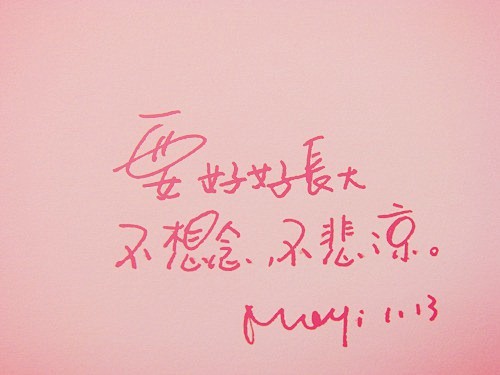 要好好長大
不想念、不悲涼。
Mayi 11.13